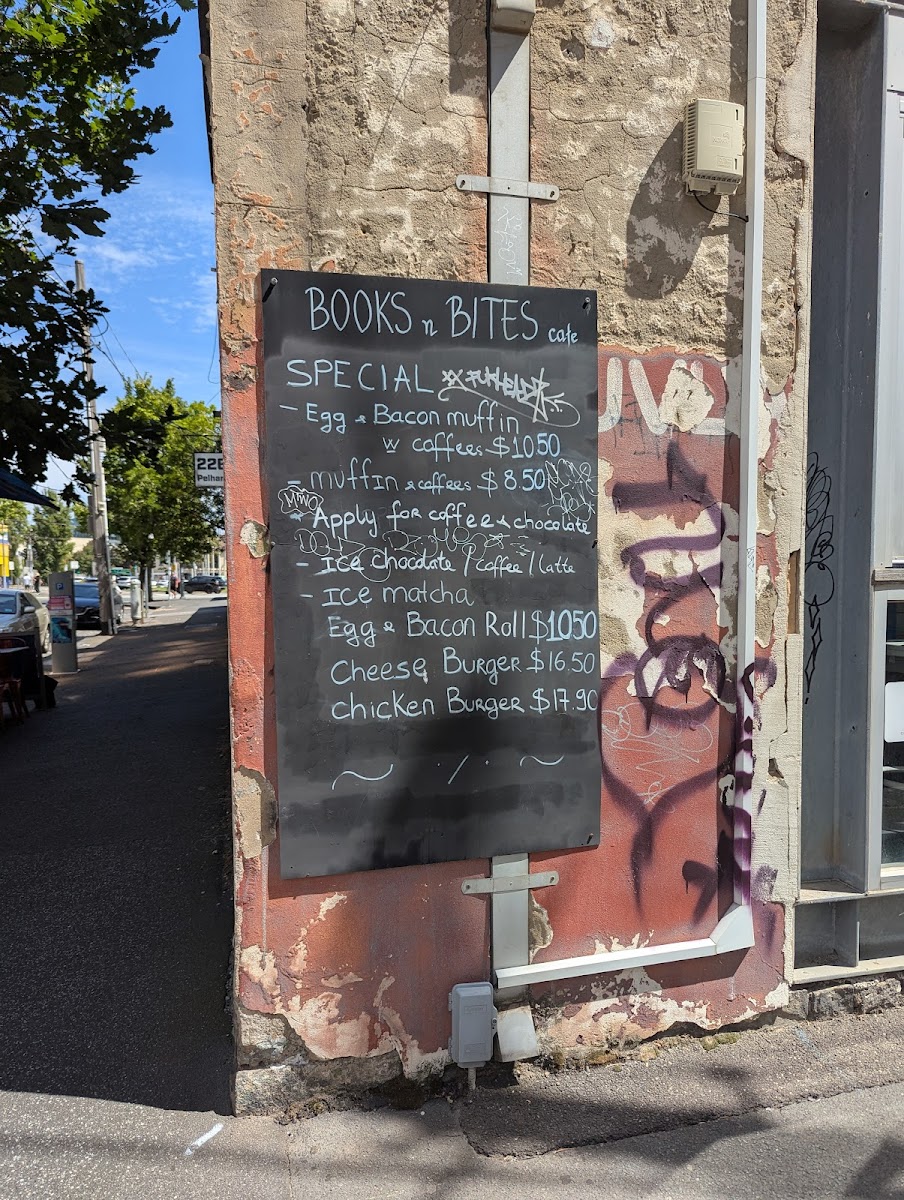 BOOKS n BITES cafe
SPECIAL
- Egg & Bacon muffin
w coffees $10.50
- muffin & coffees $8.50
- Apply for coffee & chocolate
- Ice chocolate / coffee / latte
- Ice matcha
Egg & Bacon Roll $10.50
Cheese Burger $16.50
chicken Burger $17.90
Pelham